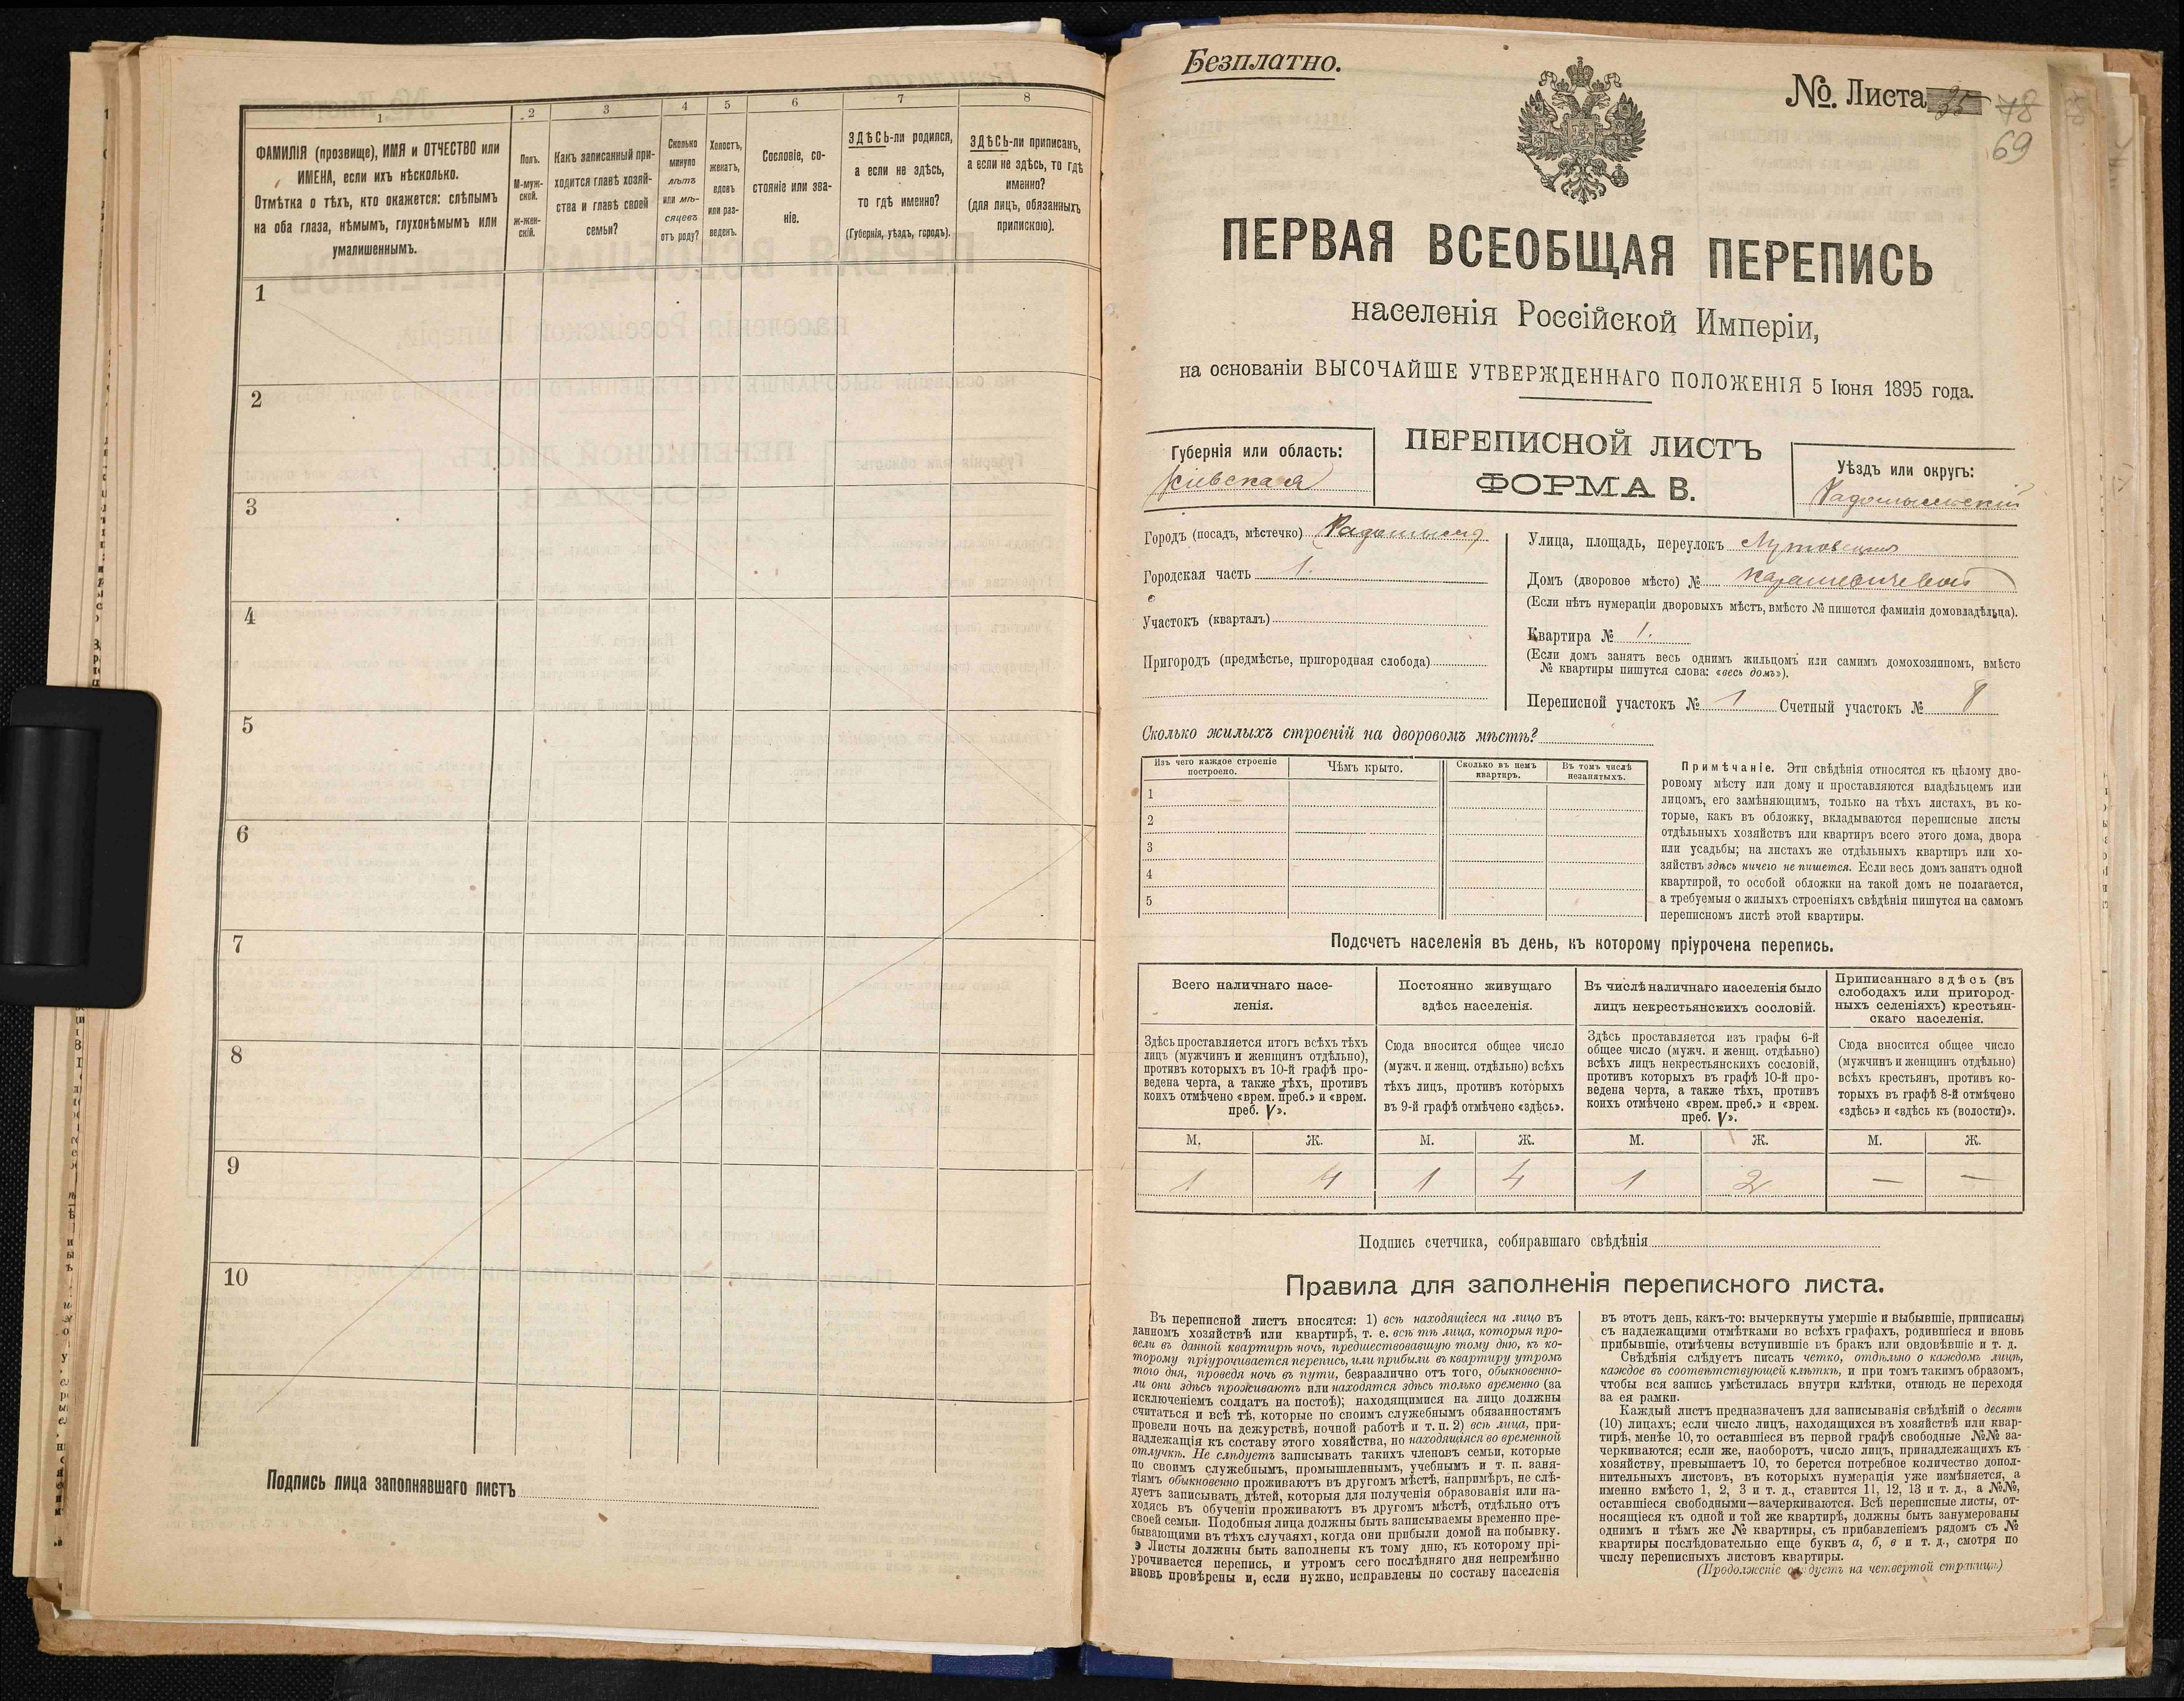 1
2
3
4
5
6
7
8
ФАМИЛІЯ (прозвище), ИМЯ и ОТЧЕСТВО или
ИМЕНА, если ихъ нѣсколько.
Отмѣтка о тѣхъ, кто окажется: слѣпымъ
на оба глаза, нѣмымъ, глухонѣмымъ или
умалишеннымъ.
Полъ.
М-муж-
ской.
Ж-жен-
скій.
Какъ записанный при-
ходится главѣ хозяй-
ства и главѣ своей
семьи?
Сколько
минуло
лѣтъ
или мѣ-
сяцевъ
отъ роду?
Холостъ,
женатъ,
вдовъ
или раз-
веденъ.
Сословіе, со-
стояніе или зва-
ніе.
ЗДѢСЬ-ли родился,
а если не здѣсь,
то гдѣ именно?
(Губернія, уѣздъ, городъ).
ЗДѢСЬ-ли приписанъ,
а если не здѣсь, то гдѣ
именно?
(для лицъ, обязанныхъ
припискою).
1
2
3
4
5
6
7
8
9
10
Подпись лица заполнявшаго листъ
Безплатно.
№. Листа 35 78
69
ПЕРВАЯ ВСЕОБЩАЯ ПЕРЕПИСЬ
населенія Россійской Имперіи,
на основаніи ВЫСОЧАЙШЕ УТВЕРЖДЕННАГО ПОЛОЖЕНІЯ 5 Іюня 1895 года.
Губернія или область:
Кіевская
ПЕРЕПИСНОЙ ЛИСТЪ
ФОРМА В.
Уѣздъ или округъ:
Радомысльскій
Городъ (посадъ, мѣстечко) Радомысль
Городская часть 1.
Участокъ (кварталъ)
Пригородъ (предмѣстье, пригородная слобода)
Улица, площадь, переулокъ
Домъ (дворовое мѣсто) №
(Если нѣтъ нумераціи дворовыхъ мѣстъ, вмѣсто № пишется фамилія домовладѣльца).
Квартира № 1.
(Если домъ занятъ весь однимъ жильцомъ или самимъ домохозяиномъ, вмѣсто
№ квартиры пишутся слова: «весь домъ»).
Переписной участокъ № 1 Счетный участокъ № 8
Сколько жилыхъ строеній на дворовомъ мѣстѣ?
Изъ чего каждое строеніе
построено.
Чѣмъ крыто.
Сколько въ немъ
квартиръ.
Въ томъ числѣ
незанятыхъ.
1
2
3
4
5
Примѣчаніе. Эти свѣдѣнія относятся къ цѣлому дво-
ровому мѣсту или дому и проставляются владѣльцемъ или
лицомъ, его замѣняющимъ, только на тѣхъ листахъ, въ ко-
торые, какъ въ обложку, вкладываются переписные листы
отдѣльныхъ хозяйствъ или квартиръ всего этого дома, двора
или усадьбы; на листахъ же отдѣльныхъ квартиръ или хо-
зяйствъ здѣсь ничего не пишется. Если весь домъ занятъ одной
квартирой, то особой обложки на такой домъ не полагается,
а требуемыя о жилыхъ строеніяхъ свѣдѣнія пишутся на самомъ
переписномъ листѣ этой квартиры.
Подсчетъ населенія въ день, къ которому пріурочена перепись.
Всего наличнаго насе-
ленія.
Постоянно живущаго
здѣсь населенія.
Въ числѣ наличнаго населенія было
лицъ некрестьянскихъ сословій.
Приписаннаго здѣсь (въ
слободахъ или пригород-
ныхъ селеніяхъ) крестьян-
скаго населенія.
Здѣсь проставляется итогъ всѣхъ тѣхъ
лицъ (мужчинъ и женщинъ отдѣльно),
противъ которыхъ въ 10-й графѣ про-
ведена черта, а также тѣхъ, противъ
коихъ отмѣчено «врем. преб.» и «врем.
преб. V».
Сюда вносится общее число
(мужч. и женщ. отдѣльно) всѣхъ
тѣхъ лицъ, противъ которыхъ
въ 9-й графѣ отмѣчено «здѣсь».
Здѣсь проставляется изъ графы 6-й
общее число (мужч. и женщ. отдѣльно)
всѣхъ лицъ некрестьянскихъ сословій,
противъ которыхъ въ графѣ 10-й про-
ведена черта, а также тѣхъ, противъ
коихъ отмѣчено «врем. преб.» и «врем.
преб. V».
Сюда вносится общее число
(мужчинъ и женщинъ отдѣльно)
всѣхъ крестьянъ, противъ ко-
торыхъ въ графѣ 8-й отмѣчено
«здѣсь» и «здѣсь къ (волости)».
М. Ж. М. Ж. М. Ж. М. Ж.
1 4 1 4 1 2 — —
Подпись счетчика, собиравшаго свѣдѣнія
Правила для заполненія переписного листа.
Въ переписной листъ вносятся: 1) всѣ находящіеся на лицо въ
данномъ хозяйствѣ или квартирѣ, т. е. всѣ тѣ лица, которыя про-
вели въ данной квартирѣ ночь, предшествовавшую тому дню, къ ко-
торому пріурочивается перепись, или прибыли въ квартиру утромъ
того дня, проведя ночь въ пути, безразлично отъ того, обыкновенно-
ли они здѣсь проживаютъ или находятся здѣсь только временно (за
исключеніемъ солдатъ на постоѣ); находящимися на лицо должны
считаться и всѣ тѣ, которые по своимъ служебнымъ обязанностямъ
провели ночь на дежурствѣ, ночной работѣ и т. п. 2) всѣ лица, при-
надлежащія къ составу этого хозяйства, но находящіяся во временной
отлучкѣ. Не слѣдуетъ записывать такихъ членовъ семьи, которые
по своимъ служебнымъ, промышленнымъ, учебнымъ и т. п. заня-
тіямъ обыкновенно проживаютъ въ другомъ мѣстѣ, напримѣръ, не слѣ-
дуетъ записывать дѣтей, которыя для полученія образованія или на-
ходясь въ обученіи проживаютъ въ другомъ мѣстѣ, отдѣльно отъ
своей семьи. Подобныя лица должны быть записываемы временно пре-
бывающими въ тѣхъ случаяхъ, когда они прибыли домой на побывку.
Листы должны быть заполнены къ тому дню, къ которому прі-
урочивается перепись, и утромъ сего послѣдняго дня непремѣнно
вновь провѣрены и, если нужно, исправлены по составу населенія
въ этотъ день, какъ-то: вычеркнуты умершіе и выбывшіе, приписаны
съ надлежащими отмѣтками во всѣхъ графахъ, родившіеся и вновь
прибывшіе, отмѣчены вступившіе въ бракъ или овдовѣвшіе и т. д.
Свѣдѣнія слѣдуетъ писать четко, отдѣльно о каждомъ лицѣ,
каждое въ соотвѣтствующей клѣткѣ, и при томъ такимъ образомъ,
чтобы вся запись умѣстилась внутри клѣтки, отнюдь не переходя
за ея рамки.
Каждый листъ предназначенъ для записыванія свѣдѣній о десяти
(10) лицахъ; если число лицъ, находящихся въ хозяйствѣ или квар-
тирѣ, менѣе 10, то оставшіеся въ первой графѣ свободные №№ за-
черкиваются; если же, наоборотъ, число лицъ, принадлежащихъ къ
хозяйству, превышаетъ 10, то берется потребное количество допол-
нительныхъ листовъ, въ которыхъ нумерація уже измѣняется, а
именно вмѣсто 1, 2, 3 и т. д., ставится 11, 12, 13 и т. д., а №№,
оставшіеся свободными—зачеркиваются. Всѣ переписные листы, от-
носящіеся къ одной и той же квартирѣ, должны быть занумерованы
однимъ и тѣмъ же № квартиры, съ прибавленіемъ рядомъ съ №
квартиры послѣдовательно еще буквъ а, б, в и т. д., смотря по
числу переписныхъ листовъ квартиры.
(Продолженіе слѣдуетъ на четвертой страницѣ)